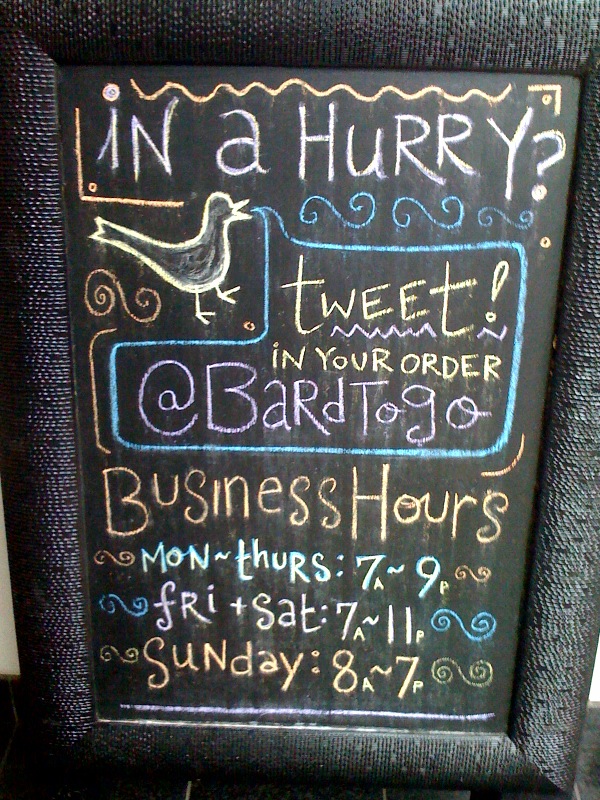 iN a HuRRY?
tWEEt!
iN YOUR ORDER
@BaRdTogo
Business Hours
MON~thuRS: 7A~9P
fRi + Sat: 7A~11P
SUNday: 8A~7P